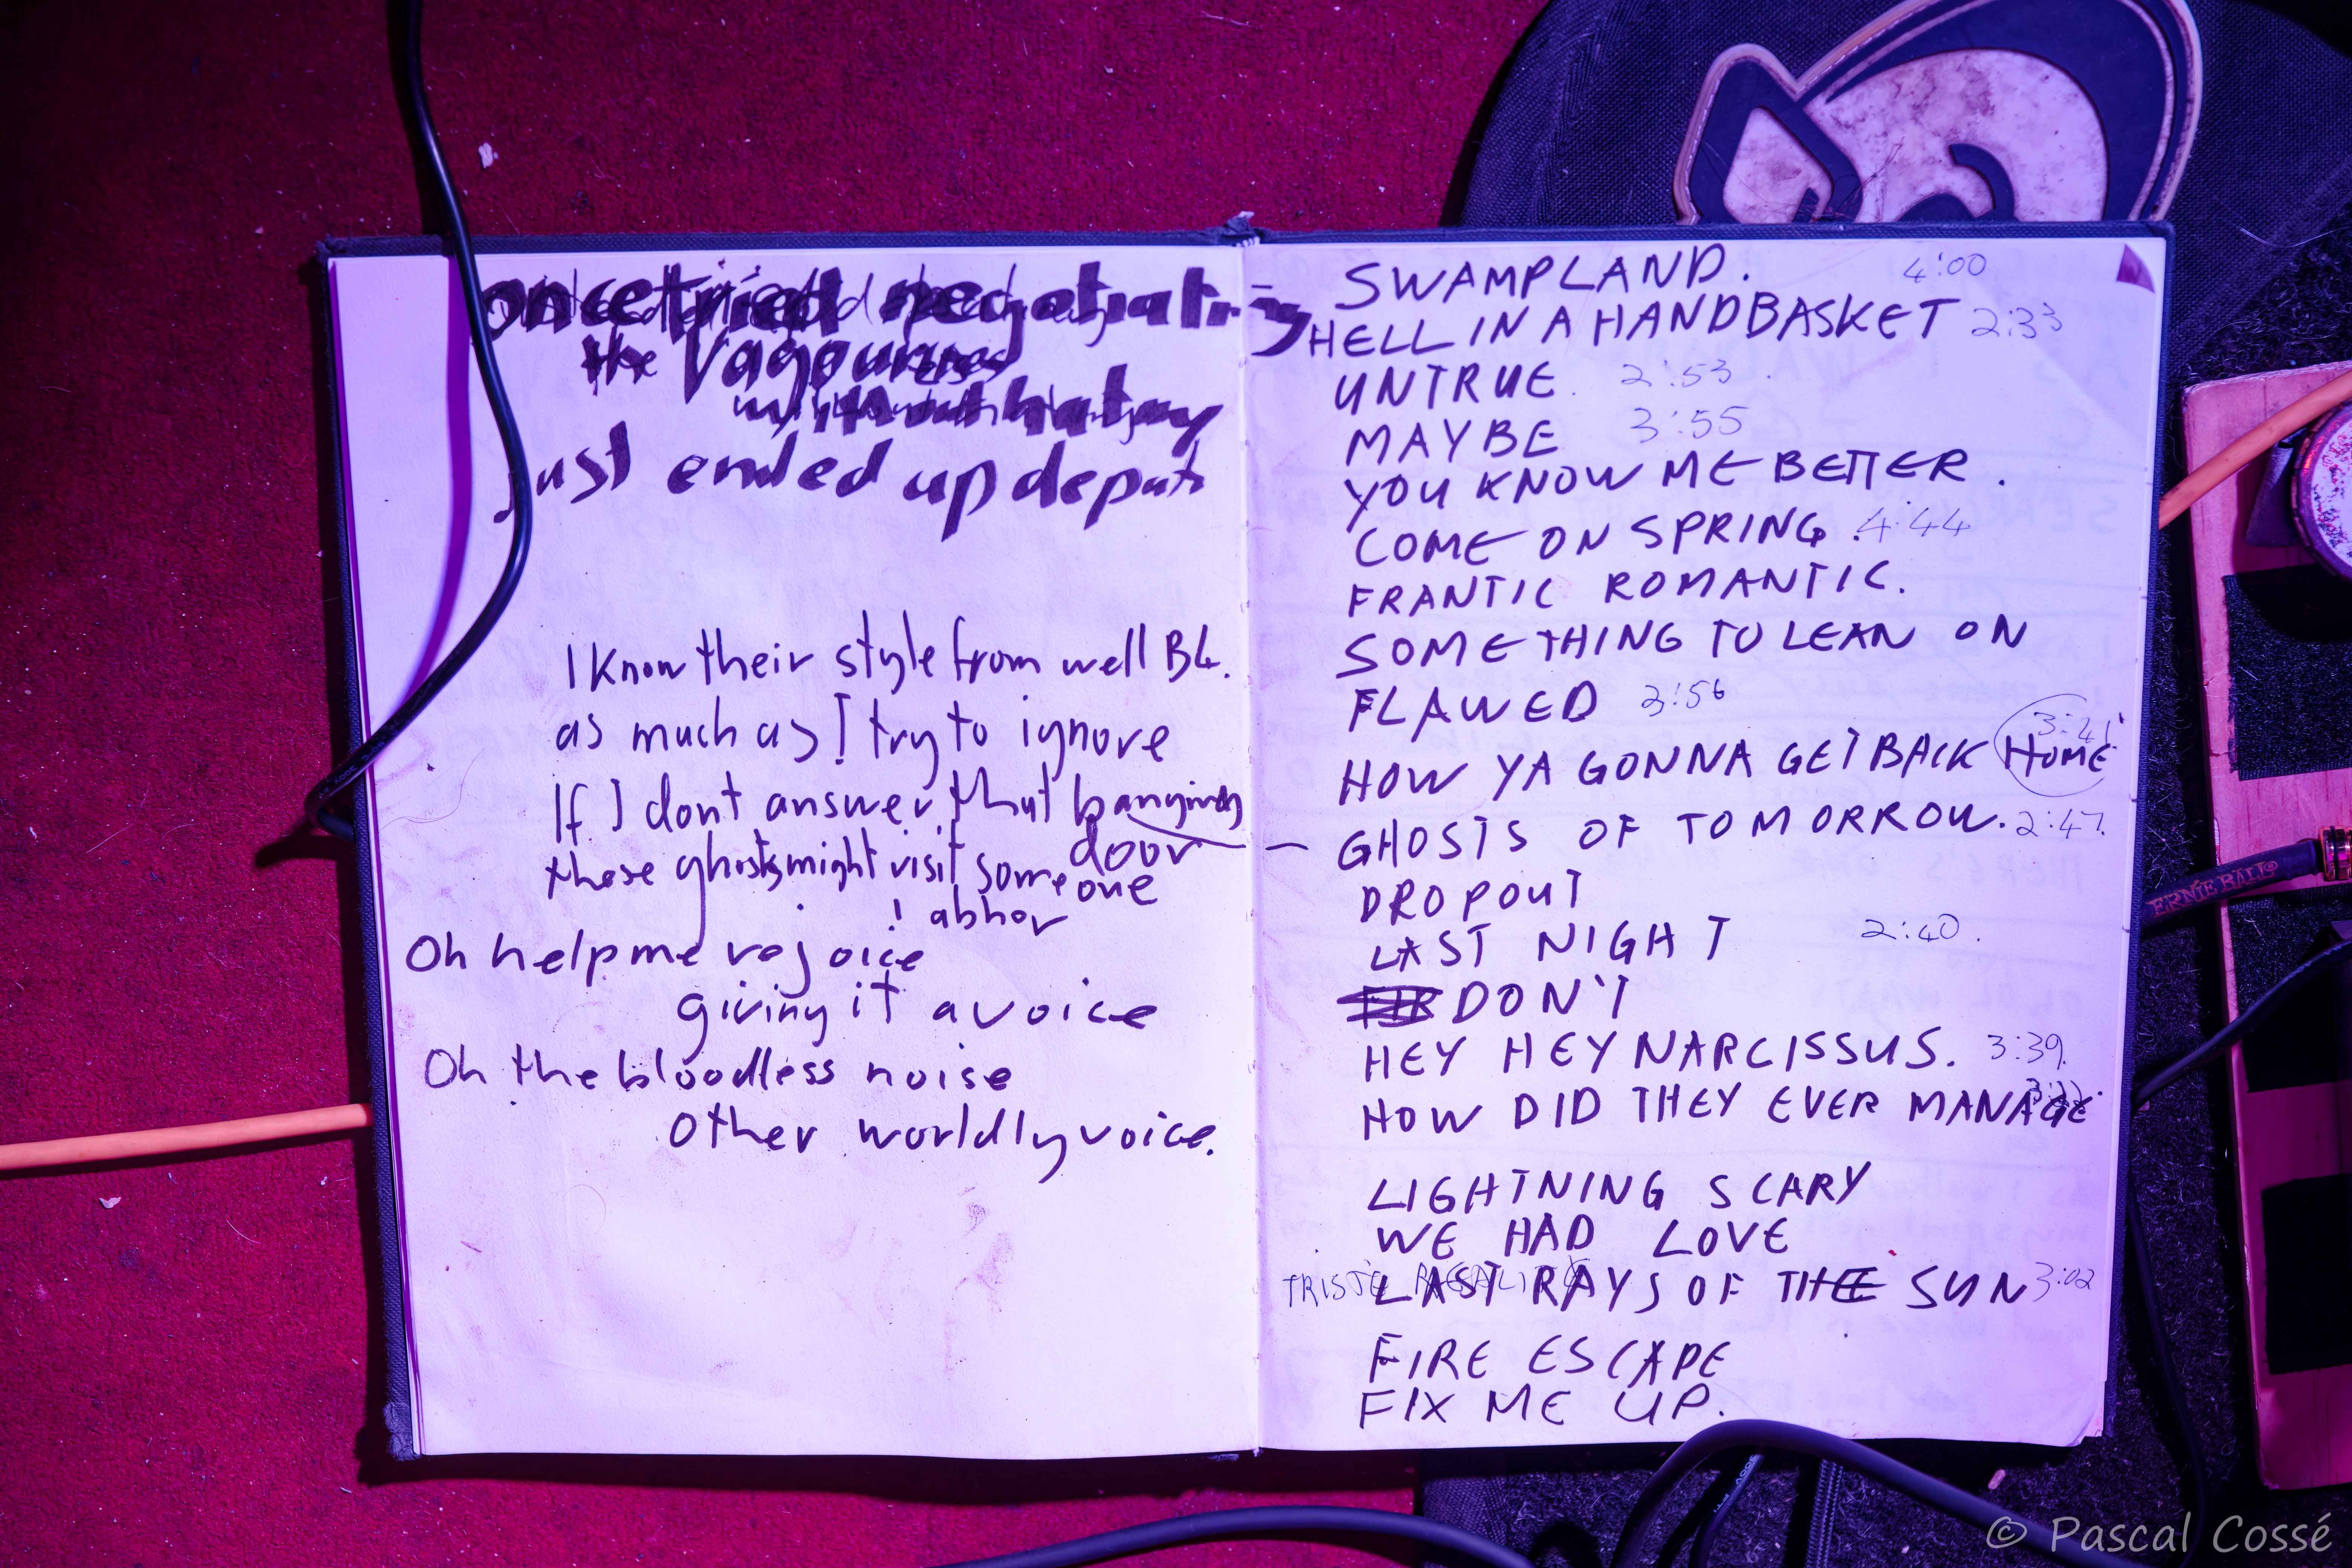 once tried negotiating
the Vagaries
just ended up deputy
I know their style from well B4.
as much as I try to ignore
If I dont answer that banging
door
these ghosts might visit someone
I abhor
Oh help me rejoice
giving it a voice
Oh the bloodless noise
other worldly voice.
SWAMPLAND. 4:00
HELL IN A HANDBASKET 2:33
UNTRUE. 2:53
MAYBE 3:55
YOU KNOW ME BETTER.
COME ON SPRING. 4:44
FRANTIC ROMANTIC.
SOMETHING TO LEAN ON
FLAWED 3:56
HOW YA GONNA GET BACK HOME 3:41
GHOSTS OF TOMORROW. 2:47.
DROPOUT
LAST NIGHT 2:40.
DON'T
HEY HEY NARCISSUS. 3:39.
HOW DID THEY EVER MANAGE
LIGHTNING SCARY
WE HAD LOVE
TRISTE REALITE
LAST RAYS OF THE SUN 3:02
FIRE ESCAPE
FIX ME UP.
ERNIE BALL®
© Pascal Cossé